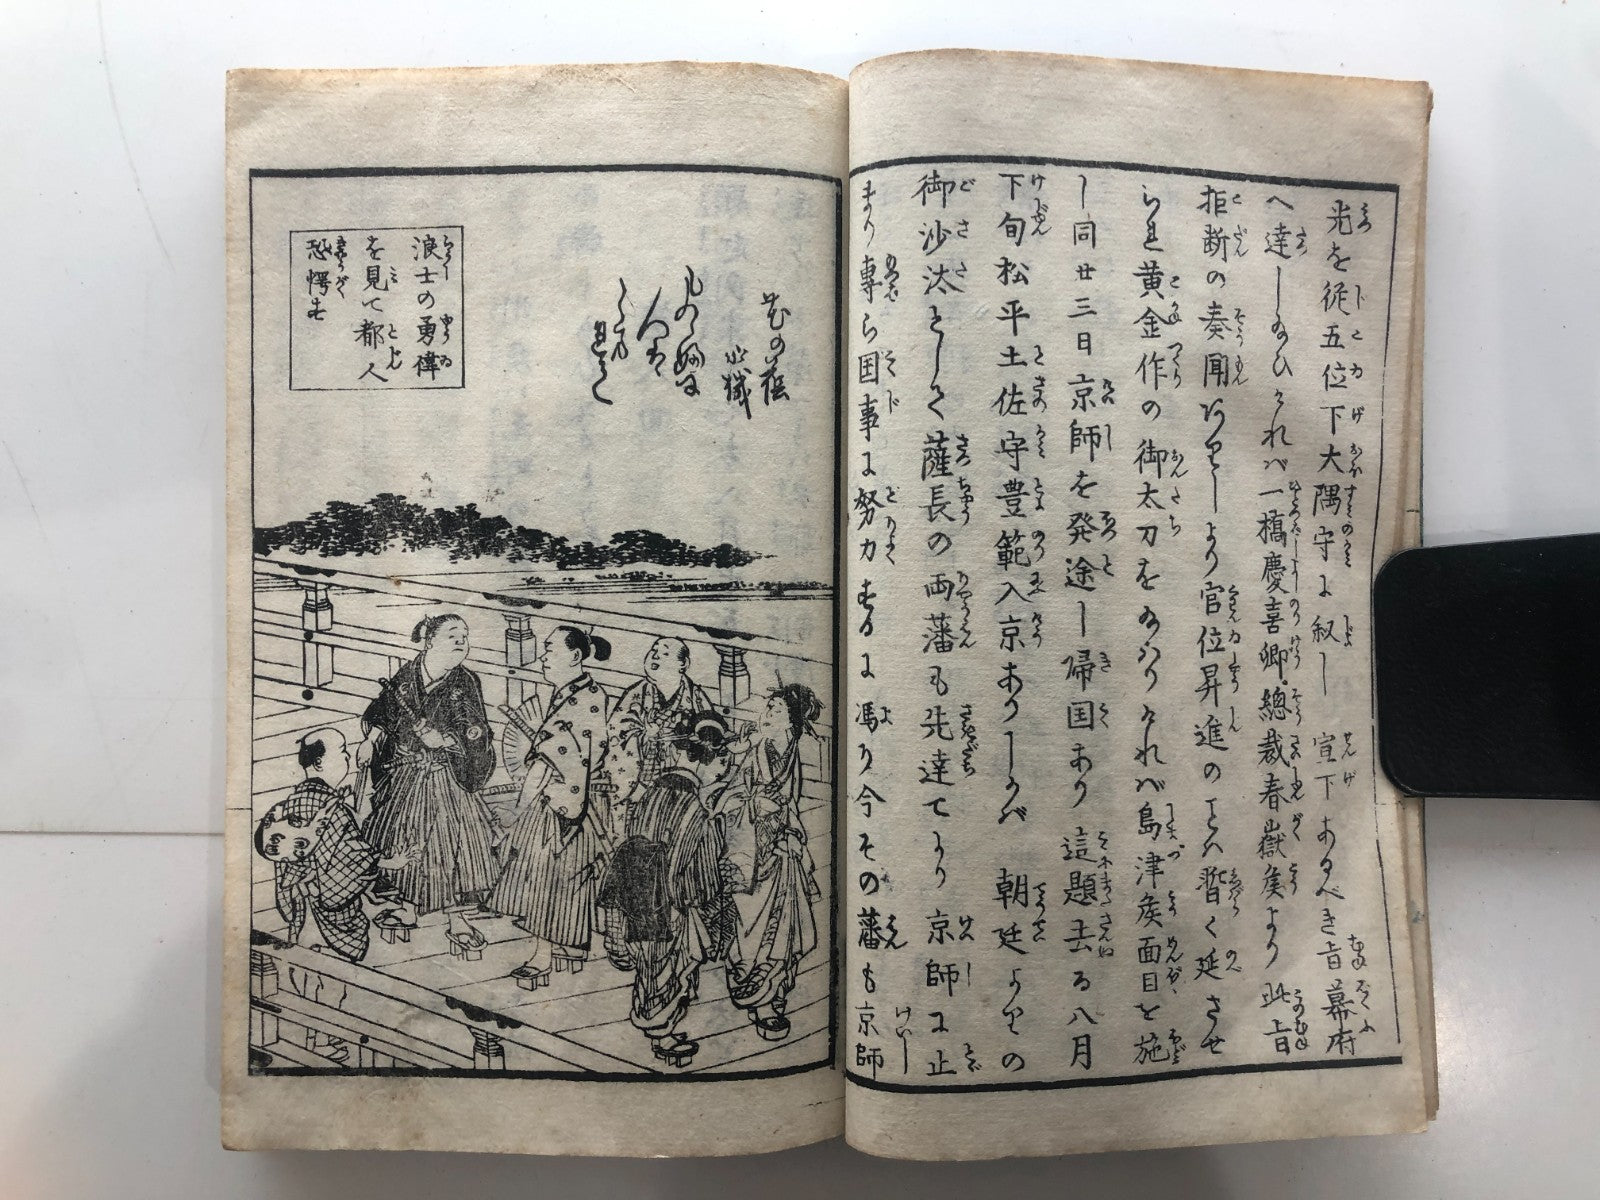 光を従五位下大隅守に叙し 宣下あるべき旨幕府
へ達し給ひければ一橋慶喜卿總裁春嶽矦より此旨
拒断の奏聞ありしより官位昇進のことハ暫く延させ
られ黄金作の御太刀を給ハりければ島津矦面目を施
し同廿三日京師を発途し帰国あり這題去る八月
下旬松平土佐守豊範入京ありしかバ 朝廷よりの
御沙汰として薩長の両藩も先達てより京師に止
まり専ら国事に努力するに馮り今その藩も京師
花の蔭
浪士の勇偉
を見て都人
恐愕す